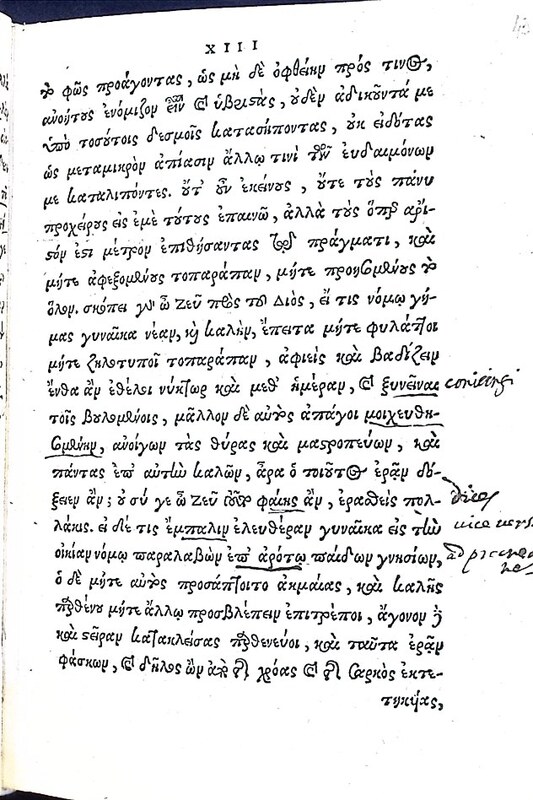 XIII
τὸ φῶς προάγοντας, ὡς μὴ δὲ ὀφθείην πρός τινος,
ἀνοήτους ἐνόμιζον εἶναι καὶ ὑβριστὰς, οὐδὲν ἀδικοῦντά με
ὑπὸ τοσούτοις δεσμοῖς κατασήποντας, οὐκ εἰδότας
ὡς μεταμικρὸν ἀπίασιν ἄλλῳ τινὶ τῶν εὐδαιμόνων
με καταλιπόντες. οὔτ' οὖν ἐκείνους, οὔτε τοὺς πάνυ
προχείρους εἰς ἐμὲ τούτους ἐπαινῶ, ἀλλὰ τοὺς ὅπερ ἄρι-
στόν ἐστι μέτρον ἐπιθήσαντας τῷ πράγματι, καὶ
μήτε ἀφεξομένους τοπαράπαν, μήτε προησομένους τὸ
ὅλον. σκόπει γὰρ ὦ Ζεῦ πρὸς τοῦ Διὸς, εἴ τις νόμῳ γή-
μας γυναῖκα νέαν, καὶ καλὴν, ἔπειτα μήτε φυλάττοι
μήτε ζηλοτυποῖ τοπαράπαν, ἀφιεὶς καὶ βαδίζειν
ἔνθα ἂν ἐθέλοι νύκτωρ καὶ μεθ' ἡμέραν, καὶ ξυνεῖναι
τοῖς βουλομένοις, μᾶλλον δὲ αὐτὸς ἀπάγοι μοιχευθη-
σομένην, ἀνοίγων τὰς θύρας καὶ μαστροπεύων, καὶ
πάντας ἐπ' αὐτὴν καλῶν, ἆρα ὁ τοιοῦτος ἐρᾶν δό-
ξειεν ἄν; οὐ σύ γε ὦ Ζεῦ τοῦτο φαίης ἂν, ἐρασθεὶς πολ-
λάκις. εἰ δέ τις ἔμπαλιν ἐλευθέραν γυναῖκα εἰς τὴν
οἰκίαν νόμῳ παραλαβὼν ἐπ' ἀρότῳ παίδων γνησίων,
ὁ δὲ μήτε αὐτὸς προσάπτοιτο ἀκμαίας, καὶ καλῆς
παρθένου μήτε ἄλλῳ προσβλέπειν ἐπιτρέποι, ἄγονον δὲ
καὶ στεῖραν κατακλείσας παρθενεύοι, καὶ ταῦτα ἐρᾶν
φάσκων, καὶ δῆλος ὢν ἀπὸ τῆς χρόας καὶ τῆς σαρκὸς ἐκτε-
τηκυίας,
dices
vice vers